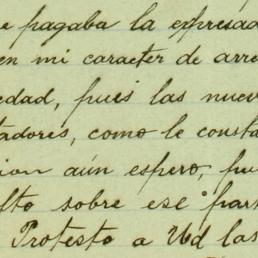 e pagaba la expresad
en mi caracter de arre
edad, pues las nuev
tadores, como le consta
ion aún espero, pu
lto sobre ese par
Protesto a Ud las